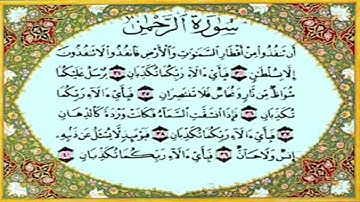 سورة الرحمن
أن تنفذوا من أقطار السموت والأرض فانفذوا لا تنفذون
إلا بسلطن ٣٣ فبأي ءالاء ربكما تكذبان ٣٤ يرسل عليكما
شواظ من نار ونحاس فلا تنتصران ٣٥ فبأي ءالاء ربكما
تكذبان ٣٦ فإذا انشقت السماء فكانت وردة كالدهان
٣٧ فبأي ءالاء ربكما تكذبان ٣٨ فيومئذ لا يسئل عن ذنبه
إنس ولا جان ٣٩ فبأي ءالاء ربكما تكذبان ٤٠